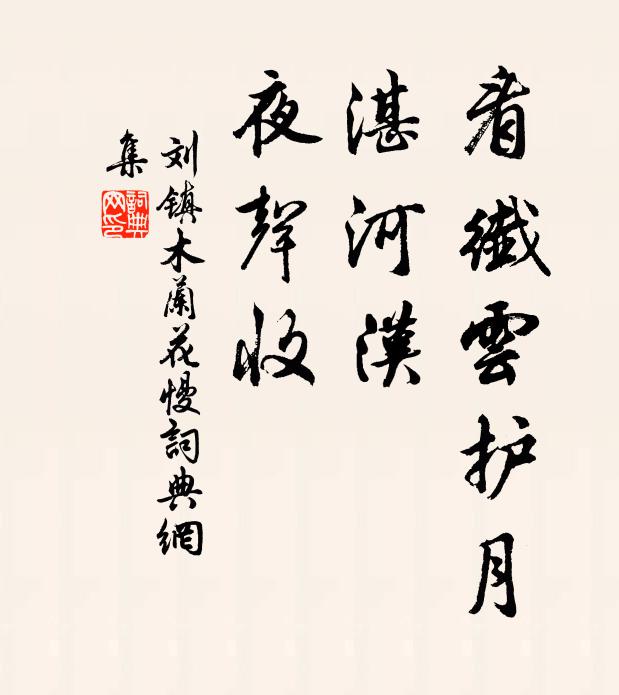 看纖雲护月
湛河漢
夜聲收
刘镇木蘭花慢詞典網
集
詞典
网印